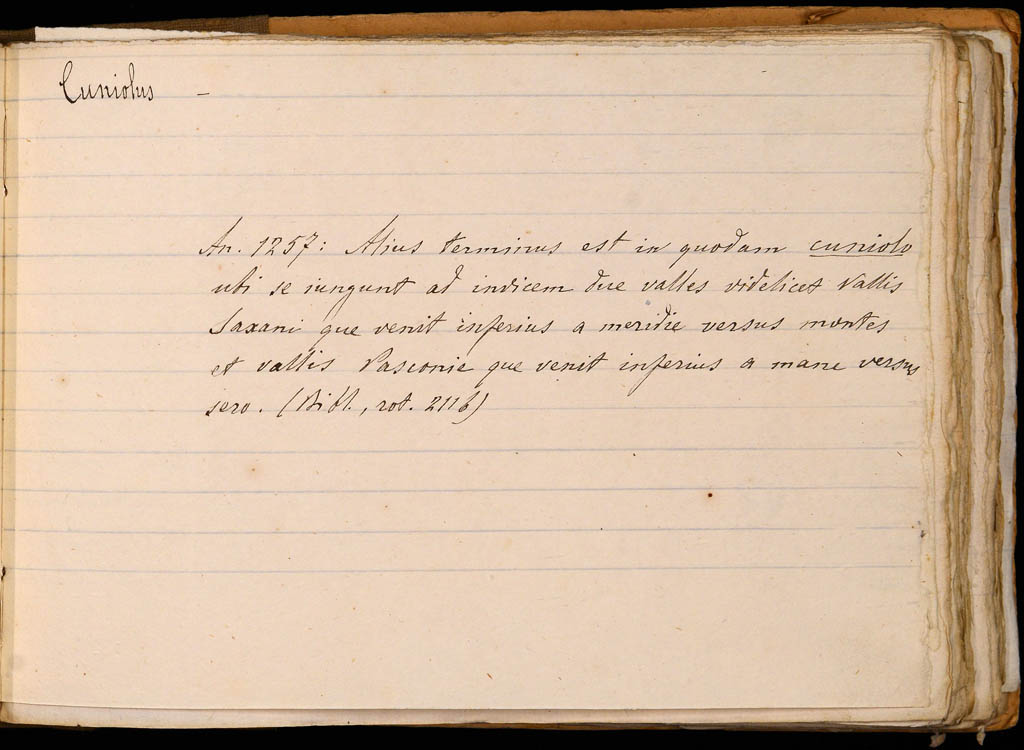 Cuniolus –
An. 1257: Alius terminus est in quodam cuniolo
ubi se iungunt ad invicem due valles videlicet Vallis
Saxani que venit inferius a meridie versus montes
et vallis Pasconie que venit inferius a mane versus
sero. (Bibl., rot. 2116)